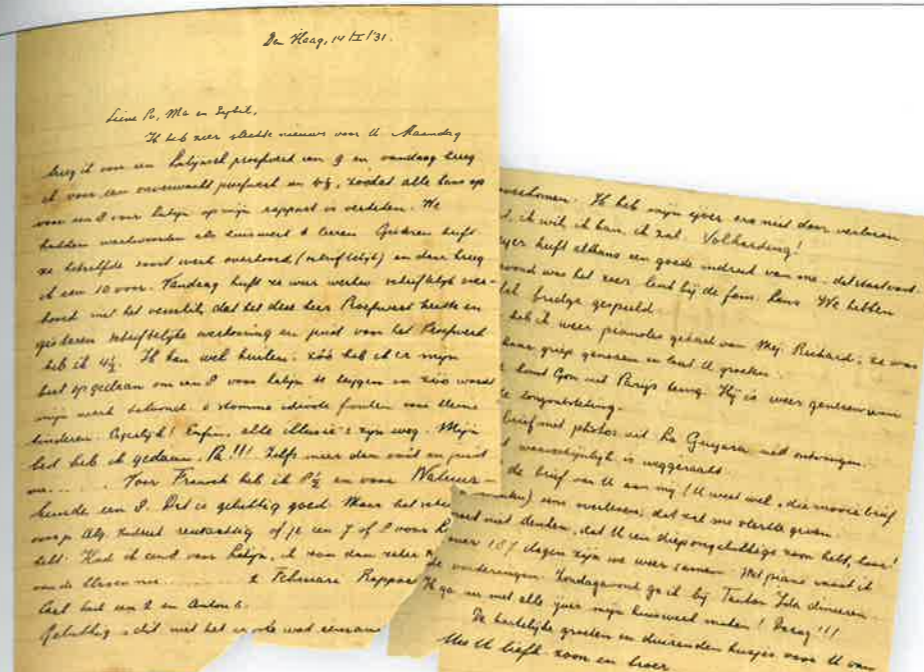 Den Haag, 14 II '31.
Lieve Pa, Ma en
Ik heb zeer slechte nieuws voor U Maandag
kreeg ik voor een Latijnsch proefwerk een 9 en vandaag kreeg
ik voor een onverwacht proefwerk en 4½, zoodat alle kans op
voor een 8 voor Latijn op mijn rapport is verkeken. We
hadden werkwoorden als huiswerk te leeren. Gisteren heeft
ze hetzelfde soort werk overhoord (schriftelijk) en daar kreeg
ik een 10 voor. Vandaag heeft ze weer werkw schriftelijk over-
hoord met het verschil, dat het deze keer Proefwerk heette en
gisteren schriftelijke overhooring en juist voor het Proefwerk
heb ik 4½. Ik kan wel huilen. zóó heb ik er mijn
best op gedaan om een 8 voor Latijn te krijgen en zoo wordt
mijn werk beloond. 2 stomme idiote fouten voor kleine
kinderen. Ongelijk! Enfin, alle illusie's zijn weg. Mijn
best heb ik gedaan, Pa!!! Zelfs meer dan ooit en juist
nu ..... Voor Fransch heb ik 8½ en voor Natuur-
kunde een 8. Dit is gelukkig goed. Maar het
voor je Alg. of je een 7 of 8 voor
hebt. Had ik eens voor Latijn, ik zou dan zeker
van de klasse nu ........ 2 Februari Rappor
Carl had een 8 en Anton 6.
Gelukkig is dit niet het
voorkomen. Ik heb mijn ijver ero niet door verloren
ik wil, ik kan, ik zal. Volharding!
heeft althans een goede indruk van me. dat staat vast.
avond was het zeer leuk bij de fam. Kans. We hebben
bridge gespeeld.
heb ik weer pianoles gehad van Mej. Richard; ze was
haar griep genezen en laat U groeten.
komt Gon uit Parijs terug. Hij is weer genezen van
longontsteking.
brief met photos uit La Guyara niet ontvangen.
waarschijnlijk is weggeraakt.
de brief van U aan mij (U weet wel, die mooie brief
eens overlezen, dat zal me sterkte geven.
moet niet denken, dat U een diep ongelukkige zoon hebt, hoor!
over 187 dagen zijn we weer samen. Met piano maak ik
de vorderingen. Zondagavond ga ik bij Tante Ida dineeren.
Ik ga nu met alle ijver mijn huiswerk maken! Daag!!!
De hartelijke groeten en duizenden kusjes voor U van
Uw U liefh. zoon en broer